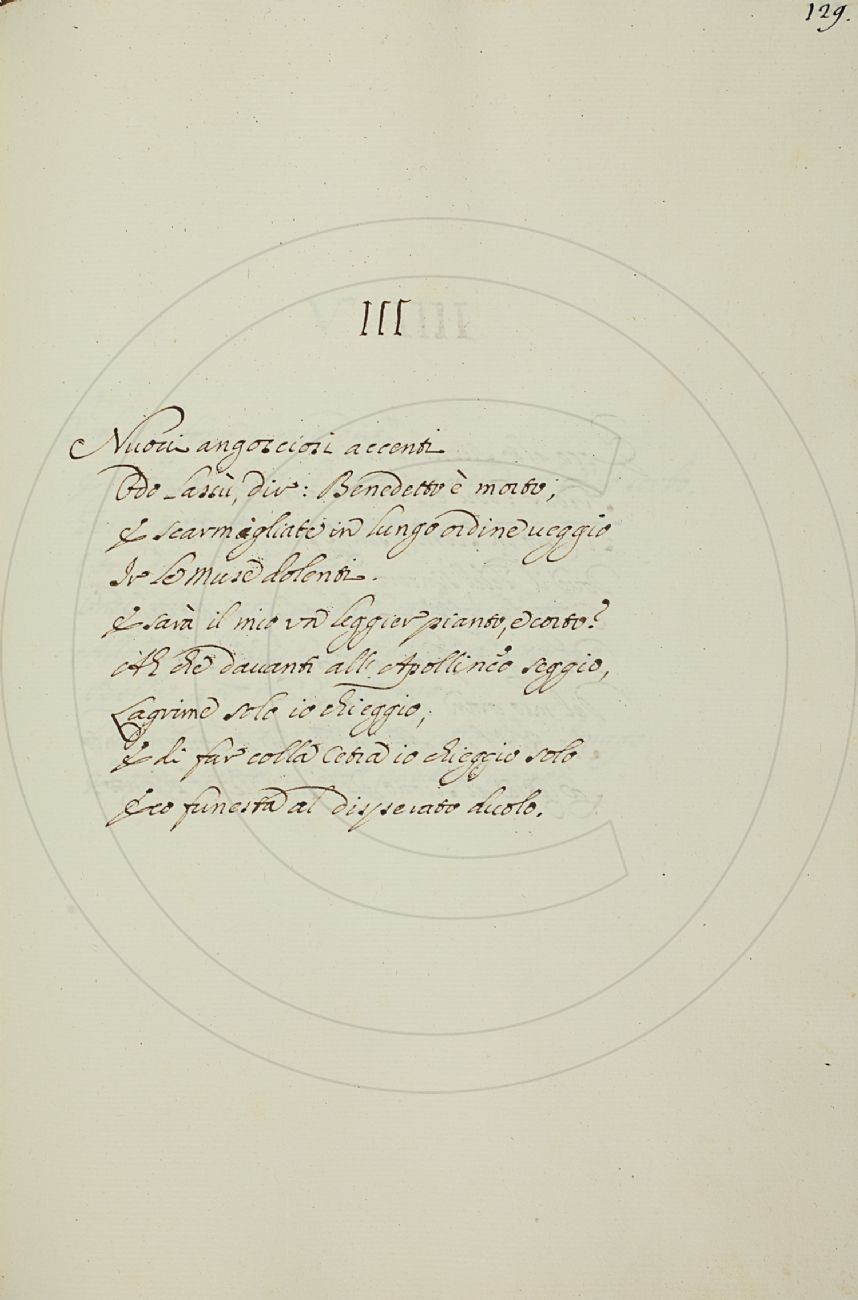 129.
III
Nuovi angosciosi accenti
Odo lassù, dir: Benedetto è morto;
E scarmigliate in lungo ordine veggio
Ir le Muse dolenti.
E sarà il mio un leggier pianto, e corto?
Ah che davanti all'Apollineo seggio,
Lagrime solo io chieggio;
E di far colla Cetra io chieggio solo
Eco funesta al disperato duolo.